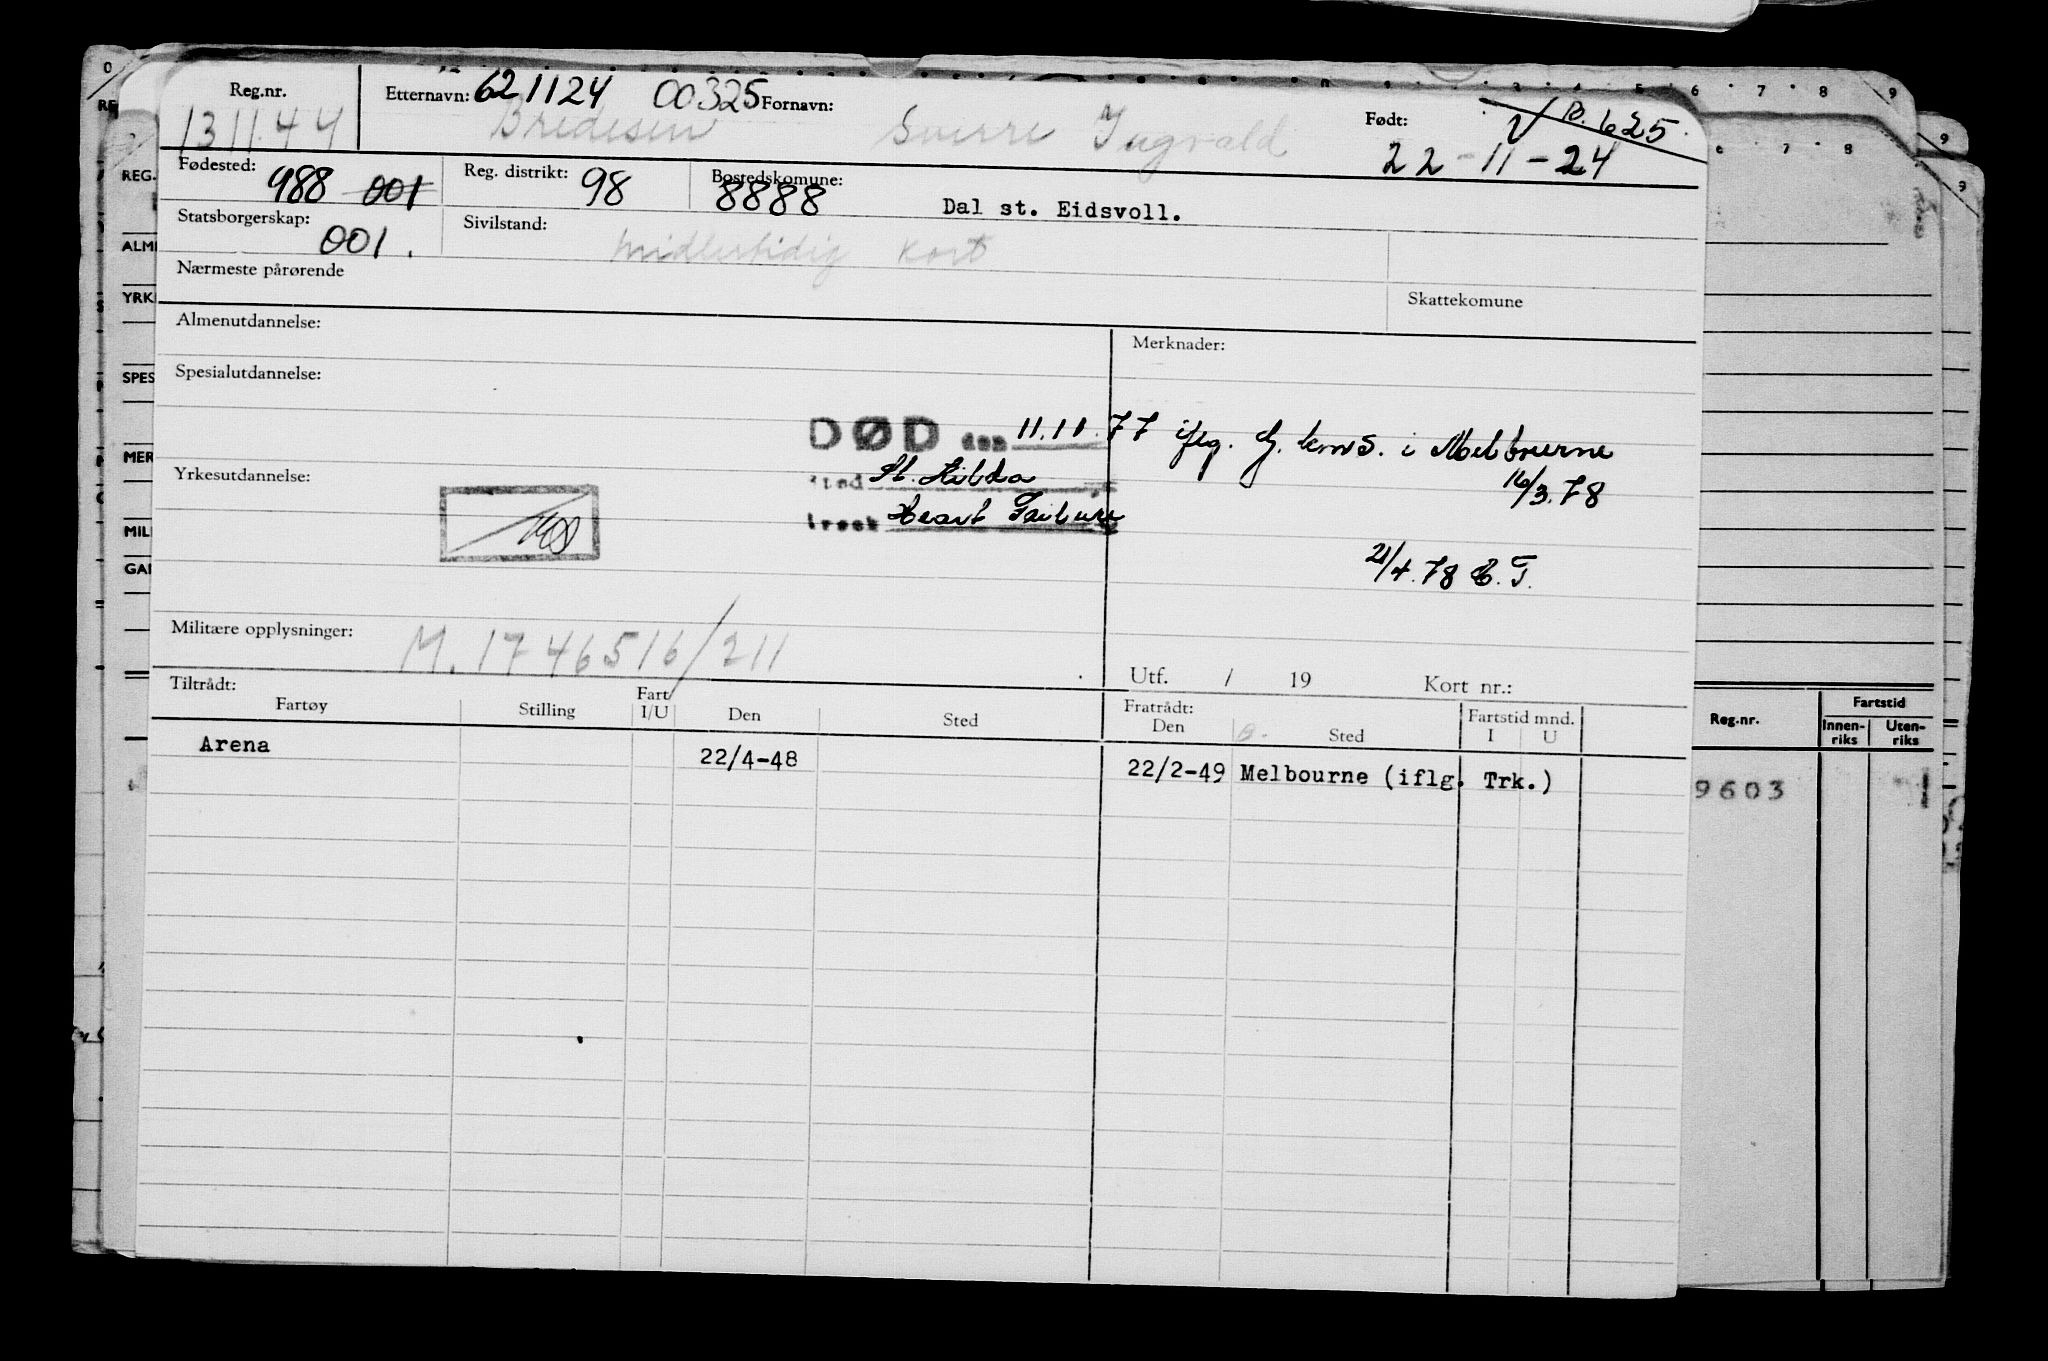 Reg.nr. Etternavn: 621124 00325 Fornavn: Født: B. 625
131144 Bredesen Sverre Ingvald 22-11-24
Fødested: 988 001 Reg. distrikt: 98 Bostedskomune: 8888 Dal st. Eidsvoll.
Statsborgerskap: 001. Sivilstand: Midlertidig kort
Nærmeste pårørende Skattekomune
Almenutdannelse: Merknader:
Spesialutdannelse:
DØD den 11.11.77 iflg. G. kons. i Melbourne
Sted St. Kilda 16/3.78
Yrkesutdannelse: årsak Heart Failure
21/4.78 E.T.
Militære opplysninger: M.1746516/211
Utf. / 19 Kort nr.:
Tiltrådt: Fratrådt:
Fartøy Stilling Fart I/U Den Sted Den Sted Fartstid mnd. I U
Arena 22/4-48 22/2-49 Melbourne (iflg. Trk.)
Reg.nr. Fartstid
Innen-riks Uten-riks
9603